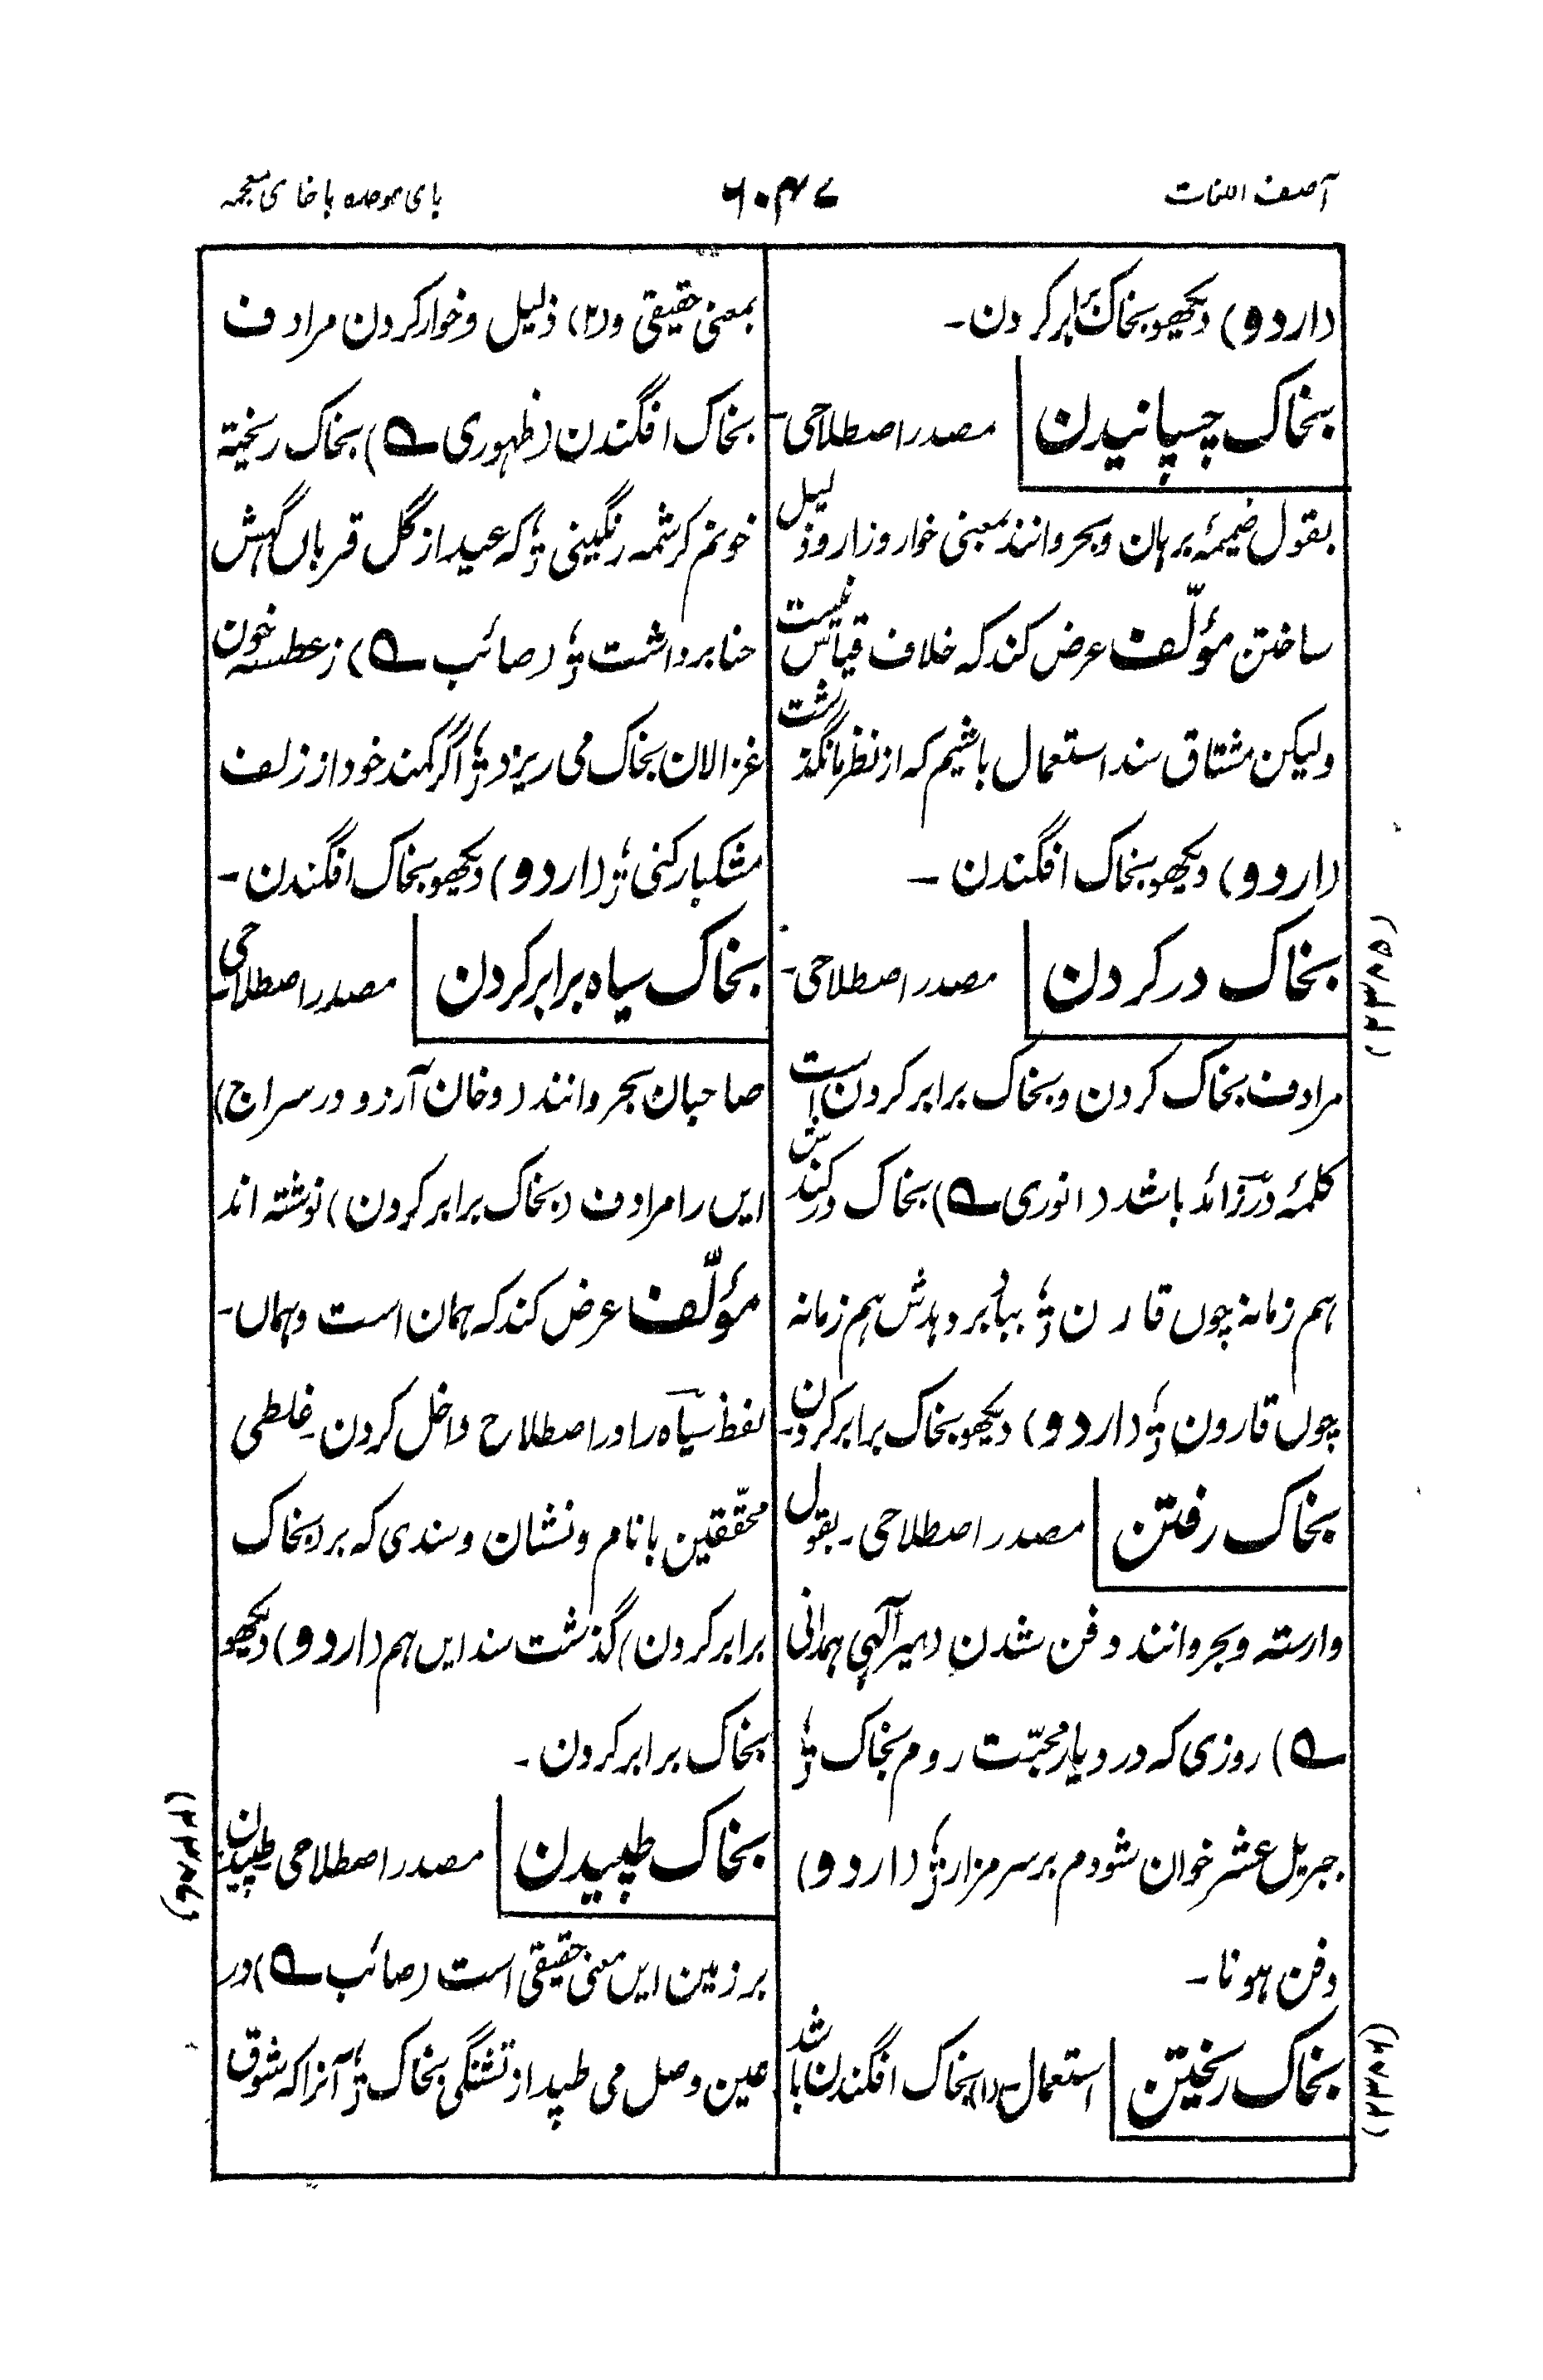 آصف اللغات
۶۰۴۷
بای موحده با خای معجمه
(اردو) دیکھو بخاک برابر کردن۔
بخاک چسپانیدن | مصدر اصطلاحی۔
بقول ضمیمۂ برہان و بحر و انند بمعنی خوار و زار و ذلیل
ساختن مؤلّف عرض کند کہ خلاف قیاس نیست
ولیکن مشتاق سند استعمال باشیم کہ از نظر ما نگذشت
(اردو) دیکھو بخاک افگندن ۔
بخاک در کردن | مصدر اصطلاحی۔
مرادف بخاک کردن و بخاک برابر کردن است
کلمۂ در زائد باشد (انوری ؎) بخاک در کندش
ہم زمانہ چوں قارن ؛ بباد بر دہدش ہم زمانہ
چوں قارون ؛ (اردو) دیکھو بخاک برابر کردن۔
بخاک رفتن | مصدر اصطلاحی۔ بقول
وارستہ و بحر و انند دفن شدن (میر آلہی ہمدانی
؎) روزی کہ در دیار محبّت روم بخاک ؛
جبریل عشر خوان شودم بر سر مزار ؛ (اردو)
دفن ہونا۔
بخاک ریختن | استعمال۔ (۱) بخاک افگندن باشد
بمعنی حقیقی و (۲) ذلیل و خوار کردن مرادف
بخاک افگندن (ظہوری ؎) بخاک ریختہ
خونم کرشمہ رنگینی ؛ کہ عید از گل قرباں گہش
حنا برداشت ؛ (صائب ؎) ز عطسہ خون
غزالان بخاک می ریزد ؛ اگر کمند خود از زلف
مشکبار کنی ؛ (اردو) دیکھو بخاک افگندن۔
بخاک سیاہ برابر کردن | مصدر اصطلاحی
صاحبان بحر و انند (و خان آرزو در سراج)
ایں را مرادف (بخاک برابر کردن) نوشتہ اند
مؤلّف عرض کند کہ ہمان است و ہماں۔
لفظ سیاہ را در اصطلاح داخل کردن۔ غلطی
محقّقین با نام و نشان و سندی کہ بر (بخاک
برابر کردن) گذشت سند ایں ہم (اردو) دیکھو
بخاک برابر کردن ۔
بخاک طپیدن | مصدر اصطلاحی طپیدن
بر زمین ایں معنی حقیقی است (صائب ؎) در
عین وصل می طپد از تشنگی بخاک ؛ آنرا کہ شوق
(۲۳۸۵)
(۲۳۸۶)